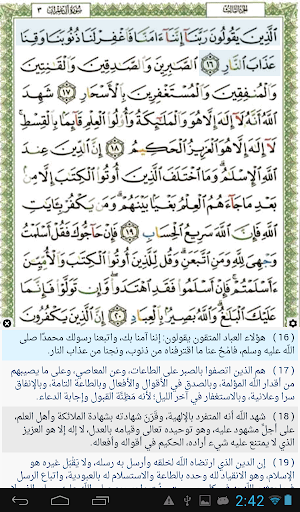 سورة آل عمران ٣ الجزء الثالث
الَّذِينَ يَقُولُونَ رَبَّنَا إِنَّنَا ءَامَنَّا فَاغْفِرْ لَنَا ذُنُوبَنَا وَقِنَا
عَذَابَ النَّارِ ١٦ الصَّٰبِرِينَ وَالصَّٰدِقِينَ وَالْقَٰنِتِينَ
وَالْمُنفِقِينَ وَالْمُسْتَغْفِرِينَ بِالْأَسْحَارِ ١٧ شَهِدَ
اللَّهُ أَنَّهُ لَا إِلَٰهَ إِلَّا هُوَ وَالْمَلَٰئِكَةُ وَأُولُوا الْعِلْمِ قَائِمًا بِالْقِسْطِ
لَا إِلَٰهَ إِلَّا هُوَ الْعَزِيزُ الْحَكِيمُ ١٨ إِنَّ الدِّينَ عِندَ
اللَّهِ الْإِسْلَٰمُ وَمَا اخْتَلَفَ الَّذِينَ أُوتُوا الْكِتَٰبَ إِلَّا مِن
بَعْدِ مَا جَاءَهُمُ الْعِلْمُ بَغْيًا بَيْنَهُمْ وَمَن يَكْفُرْ بِـَٔايَٰتِ
اللَّهِ فَإِنَّ اللَّهَ سَرِيعُ الْحِسَابِ ١٩ فَإِنْ حَاجُّوكَ فَقُلْ أَسْلَمْتُ
وَجْهِيَ لِلَّهِ وَمَنِ اتَّبَعَنِ وَقُل لِّلَّذِينَ أُوتُوا الْكِتَٰبَ وَالْأُمِّيِّينَ
ءَأَسْلَمْتُمْ فَإِنْ أَسْلَمُوا فَقَدِ اهْتَدَوا وَّإِن تَوَلَّوْا فَإِنَّمَا
عَلَيْكَ الْبَلَٰغُ وَاللَّهُ بَصِيرٌ بِالْعِبَادِ ٢٠ إِنَّ الَّذِينَ يَكْفُرُونَ
(16) هؤلاء العباد المتقون يقولون: إننا آمنا بك، واتبعنا رسولك محمدًا صلى
الله عليه وسلم، فامْحُ عنا ما اقترفناه من ذنوب، ونجنا من عذاب النار.
(17) هم الذين اتصفوا بالصبر على الطاعات، وعن المعاصي، وعلى ما يصيبهم
من أقدار الله المؤلمة، وبالصدق في الأقوال والأفعال وبالطاعة التامة، وبالإنفاق
سرا وعلانية، وبالاستغفار في آخر الليل؛ لأنه مَظِنَّة القبول وإجابة الدعاء.
(18) شهد الله أنه المتفرد بالإلهية، وقَرَنَ شهادته بشهادة الملائكة وأهل العلم،
على أجلِّ مشهود عليه، وهو توحيده تعالى وقيامه بالعدل، لا إله إلا هو العزيز
الذي لا يمتنع عليه شيء أراده، الحكيم في أقواله وأفعاله.
(19) إن الدين الذي ارتضاه الله لخلقه وأرسل به رسله، ولا يَقْبَل غيره هو
الإسلام، وهو الانقياد لله وحده بالطاعة والاستسلام له بالعبودية، واتباع
2:42